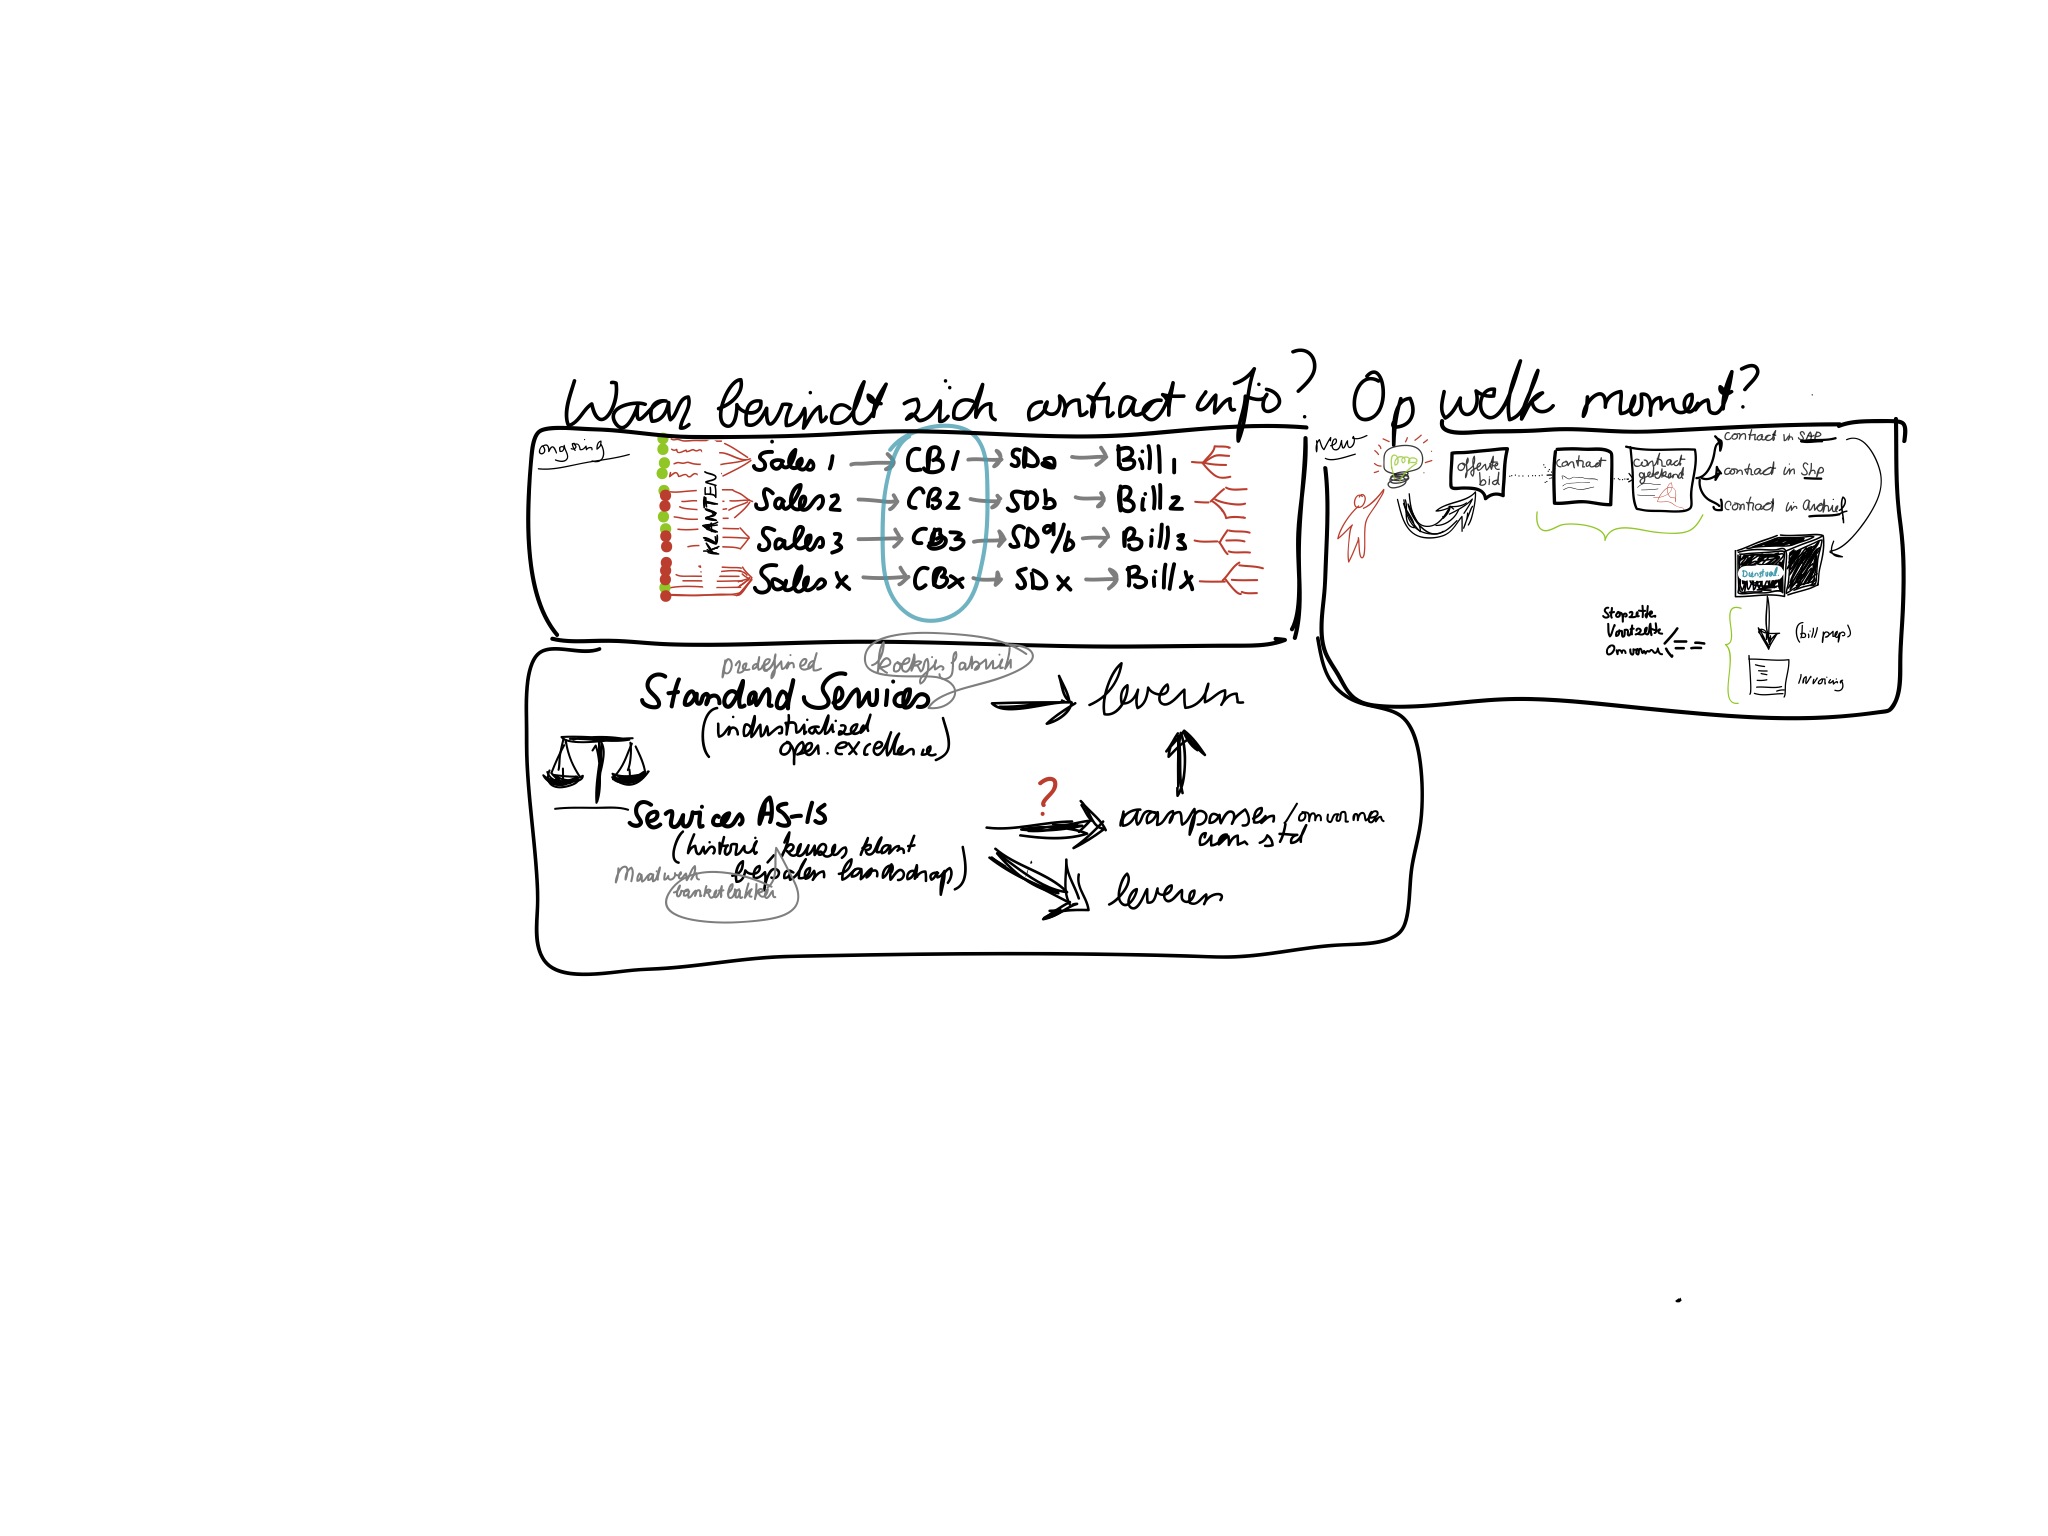 Waar bevindt zich contract info? Op welk moment?
ongoing
KLANTEN
Sales 1 CB1 SDa Bill1
Sales2 CB2 SDb Bill2
Sales3 CB3 SDa/b Bill3
Sales x CBx SDx Billx
New
offerte
bid
contract
contract
getekend
contract in SAP
contract in Shp
contract in Archief
Stopzette
Voortzette
Omvorme
(bill prep)
Invoicing
predefined
koekjisfabriek
Standard Services
leveren
(industrialized
oper. excellence)
Services AS-IS
?
aanpassen/omvormen
aan std
(histori, keuzes klant
bepalen landschap)
Maatwerk
banketbakker
leveren